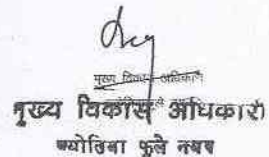 मुख्य विकास अधिकारी
मुख्य विकास अधिकारी
ज्योतिबा फुले नगर